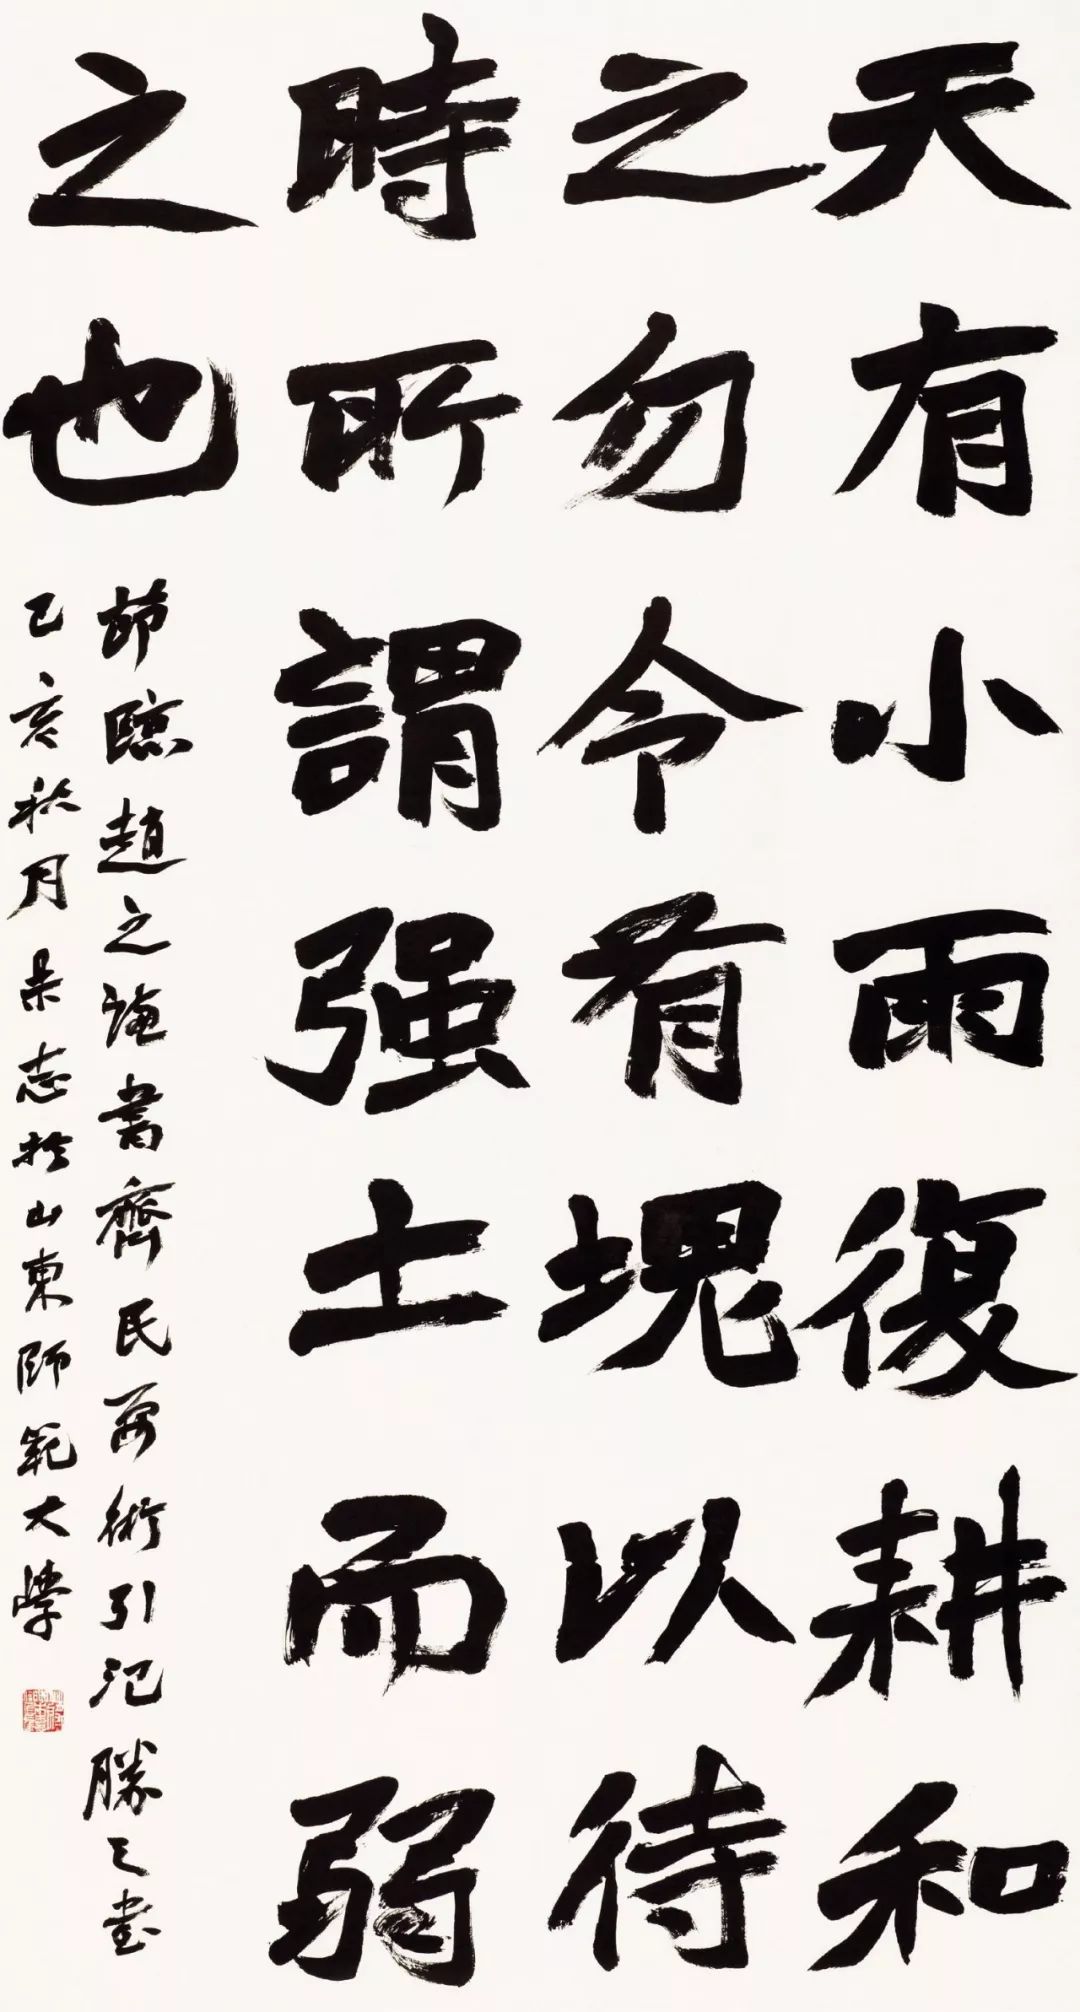 天有小雨復耕和
之勿令有塊以待
時所謂强土而弱
之也
節臨趙之謙書齊民要術引氾勝之書
己亥秋月呆志於山東師範大學